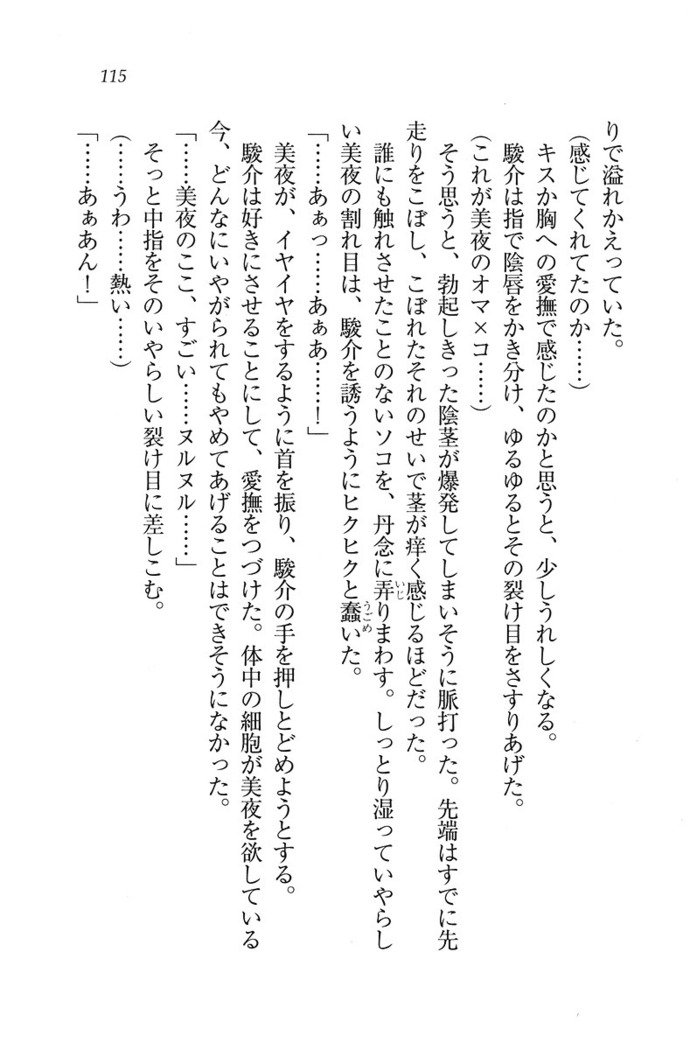 115
りで溢れかえっていた。
(感じてくれてたのか……)
キスか胸への愛撫で感じたのかと思うと、少しうれしくなる。
駿介は指で陰唇をかき分け、ゆるゆるとその裂け目をさすりあげた。
(これが美夜のオマ×コ……)
そう思うと、勃起しきった陰茎が爆発してしまいそうに脈打った。先端はすでに先
走りをこぼし、こぼれたそれのせいで茎が痒く感じるほどだった。
誰にも触れさせたことのないソコを、丹念に弄りまわす。しっとり湿っていやらし
いじ
い美夜の割れ目は、駿介を誘うようにヒクヒクと蠢いた。
うごめ
「……あぁっ……あぁあ……！」
美夜が、イヤイヤをするように首を振り、駿介の手を押しとどめようとする。
駿介は好きにさせることにして、愛撫をつづけた。体中の細胞が美夜を欲している
今、どんなにいやがられてもやめてあげることはできそうになかった。
「……美夜のここ、すごい……ヌルヌル……」
そっと中指をそのいやらしい裂け目に差しこむ。
(……うわ……熱い……)
「……あぁあん！」